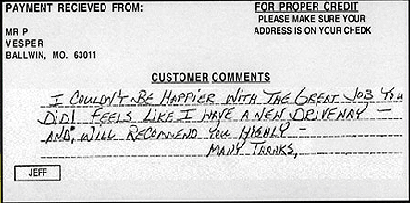 PAYNENT RECIEVED FROM:
FOR PROPER CREDIT
PLEASE MAKE SURE YOUR
ADDRESS IS ON YOUR CHEDK
MR P
VESPER
BALLWIN, MO. 63011
CUSTOMER COMMENTS
I COULDN'T BE HAPPIER WITH THE GREAT JOB YOU
DID! FEELS LIKE I HAVE A NEW DRIVEWAY -
AND, WILL RECOMMEND YOU HIGHLY -
MANY THANKS,
JEFF